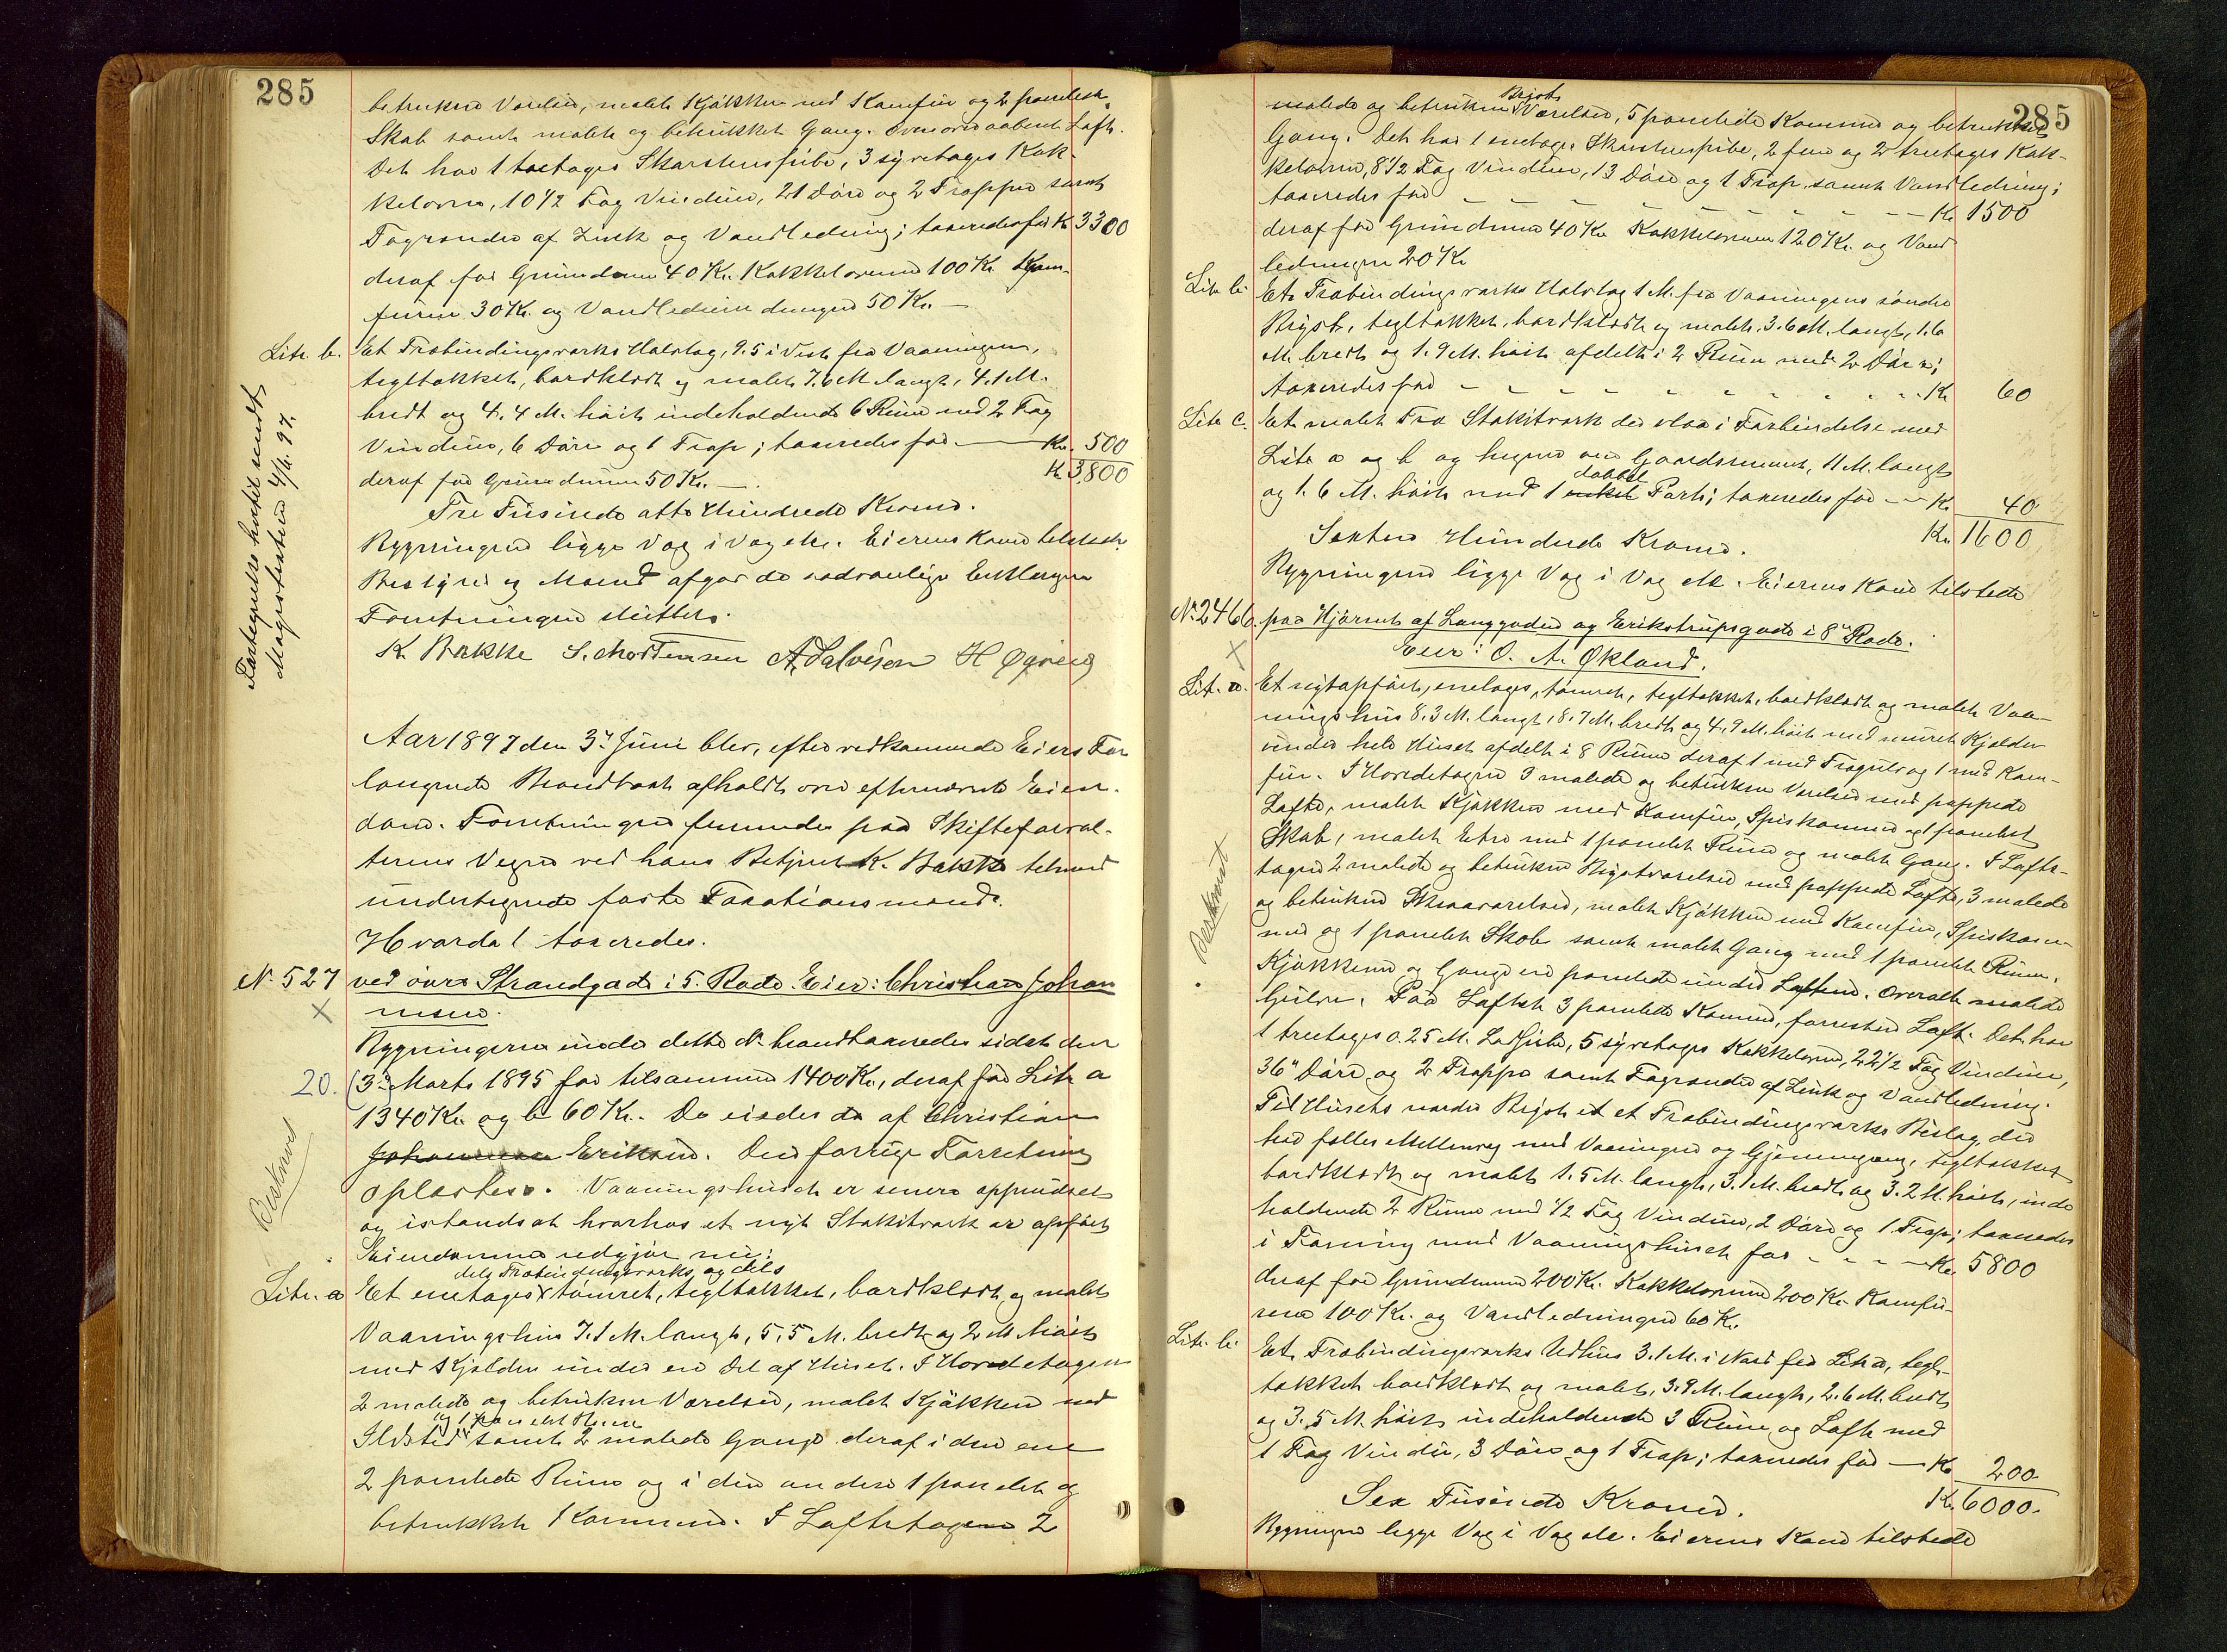 285
betrukne Værelser, malet Kjøkken med Komfur og 2 panelede
Skab samt malet og betrukket Gang. Ovenover aabent Loft.
Det har 1 toetages Skorstenspibe, 3 syvetages Kak-
kelovne, 10 1/2 Fag Vinduer, 21 Døre og 2 Trapper samt
Tagrender af Zink og Vandledning; taxeredes for Kr 3300
deraf for Grundmuren 40 Kr. Kakkelovnene 100 Kr. Kom-
furene 30 Kr. og Vandledningen 50 Kr.
Litr. b. Et Træbindingsværks Halvtag, 9.5 i Vest fra Vaaningen,
tegltækket, bordklædt og malet 7.6 M langt, 4.1 M.
bredt og 4.4 M. høit indeholdende 6 Rum med 2 Fag
Vinduer, 6 Døre og 1 Trap; taxeredes for Kr. 500
deraf for Grundmuren 50 Kr. Kr. 3,800
Tre Tusinde otte Hundrede Kroner.
Bygningerne ligge Væg i Væg etc. Eieren kom tilstede
Bestyrer og Mænd afgav de sædvanlige Erklæringer
Forretningen sluttet.
K Bakke S. Mortensen A Salvesen H Øgreid
Fortegnelse hertil sendt
Magistraten 4/6. 97.
Aar 1897 den 3de Juni blev, efter vedkommende Eiers For
langende Brandtaxt afholdt over efternævnte Eien-
dom. Forretningen fremmedes paa Skifteforval-
terens Vegne ved hans Betjent K. Bakke tilligemed
undertegnede faste Taxationsmænd.
Hvorda! taxeredes.
N. 527 ved øvre Strandgade i 5. Rode. Eier: Christian Johan
nesen.
Bygningerne under dette N. brandtaxeredes sidst den
20. (3die Marts 1895 for tilsammen 1400 Kr., deraf for Litr a
1340 Kr. og b 60 Kr. De eiedes da af Christian
Johannesen Eriksen. Den forrige Forretning
oplæstes. Vaaningshuset er senere oppudset
og istandsat hvorhos et nyt Stakitværk er opført
Beskrevet
Eiendommen udgjør nu:
dels Træbindingsværks og dels
Litr. a Et enetages tømret, tegltækket, bordklædt og malet
Vaaningshus 7.1 M. langt, 5.5 M. bredt og 2 M høit
med Kjælder under en Del af Huset. I Hovedetagen
2 malede og betrukne Værelser, malet Kjøkken med
og 1 panelet Rum
Ildsted samt 2 malede Gange deraf i den ene
2 panelede Rum og i den anden 1 panelet og
betrukket Kammer. I Loftetagen 2
285
Kvist
malede og betrukne Værelser, 5 panelede Kammer og betrukket
Gang. Det har 1 enetages Skorstenspibe, 2 fem og 2 treetages Kak-
kelovne, 8 1/2 Fag Vinduer, 13 Døre og 1 Trap samt Vandledning;
taxeredes for Kr. 1500
deraf for Grundmuren 40 Kr. Kakkelovnene 120 Kr. og Vand
ledningen 20 Kr
Litr b. Et Træbindingsværks Halvtag 1 M. fra Vaaningens søndre
Bryst, tegltækket, bordklædt og malet, 3.6 M. langt, 1.6
M. bredt og 1.9 M. høit afdelt i 2 Rum med 2 Døre;
taxeredes for Kr 60
Litr c. Et malet Træ Stakitværk der staa i Forbindelse med
Litr a og b og hegner om Gaardsrummet, 11 M. langt
dobbelt
og 1.6 M. høit med 1 enkel Port; taxeredes for Kr. 40
Sexten Hundrede Kroner. Kr. 1600
Bygningerne ligge Væg i Væg etc. Eieren kom tilstede
No 2466. paa Hjørnet af Langgaden og Erikstrupsgade i 8de Rode.
Eier: O. A. Økland.
Lit. a. Et nytopført, enetages, tømret, tegltækket, bordklædt og malet Vaa-
ningshus 8.3 M. langt, 8.7 M. bredt og 4.9 M. høit med muret Kjælder
under hele Huset afdelt i 8 Rum deraf 1 med Trægulv og 1 med Kom-
fur. I Hovedetagen 3 malede og betrukne Værelser med pappede
Lofte, malet Kjøkken med Komfur, Spiskammer og 1 panelet
Skab, malet Entre med 1 panelet Rum og malet Gang. I Loft-
etagen 2 malede og betrukne Kvistværelser med pappede Lofte, 3 malede
og betrukne Skraaværelser, malet Kjøkken med Komfur, Spiskam-
mer og 1 panelet Skab samt malet Gang med 1 panelet Rum.
Kjøkkenet og Gange er panelede under Loftene. Overalt malede
Gulve. Paa Loftet 3 panelede Kammer, forresten Loft. Det har
1 treetages 0.25 M. Ladpibe, 5 syvetages Kakkelovne, 22 1/2 Fag Vinduer,
36 Døre og 2 Trappe samt Tagrender af Zink og Vandledning.
Beskrevet
Til Husets nordre Bryst et et Træbindingsværks Bislag, der
har fælles Mellemvæg med Vaaningen og Gjennemgang, tegltækket
bordklædt og malet 1.5 M. langt, 3.1 M. bredt og 3.2 M. høit, inde
holdende 2 Rum med 1/2 Fag Vinduer, 2 Døre og 1 Trap; taxeredes
i Forening med Vaaningshuset for Kr. 5800
deraf for Grundmuren 200 Kr. Kakkelovnene 200 Kr. Komfu-
rene 100 Kr. og Vandledningen 60 Kr.
Litr. b. Et Træbindingsværks Udhus 3.1 M. i Nord fra Litr a, tegl-
tækket bordklædt og malet, 3.9 M. langt, 2.6 M. bredt
og 3.5 M. høit indeholdende 3 Rum og Loft med
1 Fag Vindu, 3 Døre og 1 Trap; taxeredes for Kr 200
Sex Tusinde Kroner. Kr. 6000.
Bygningerne ligge Væg i Væg etc. Eieren kom tilstede